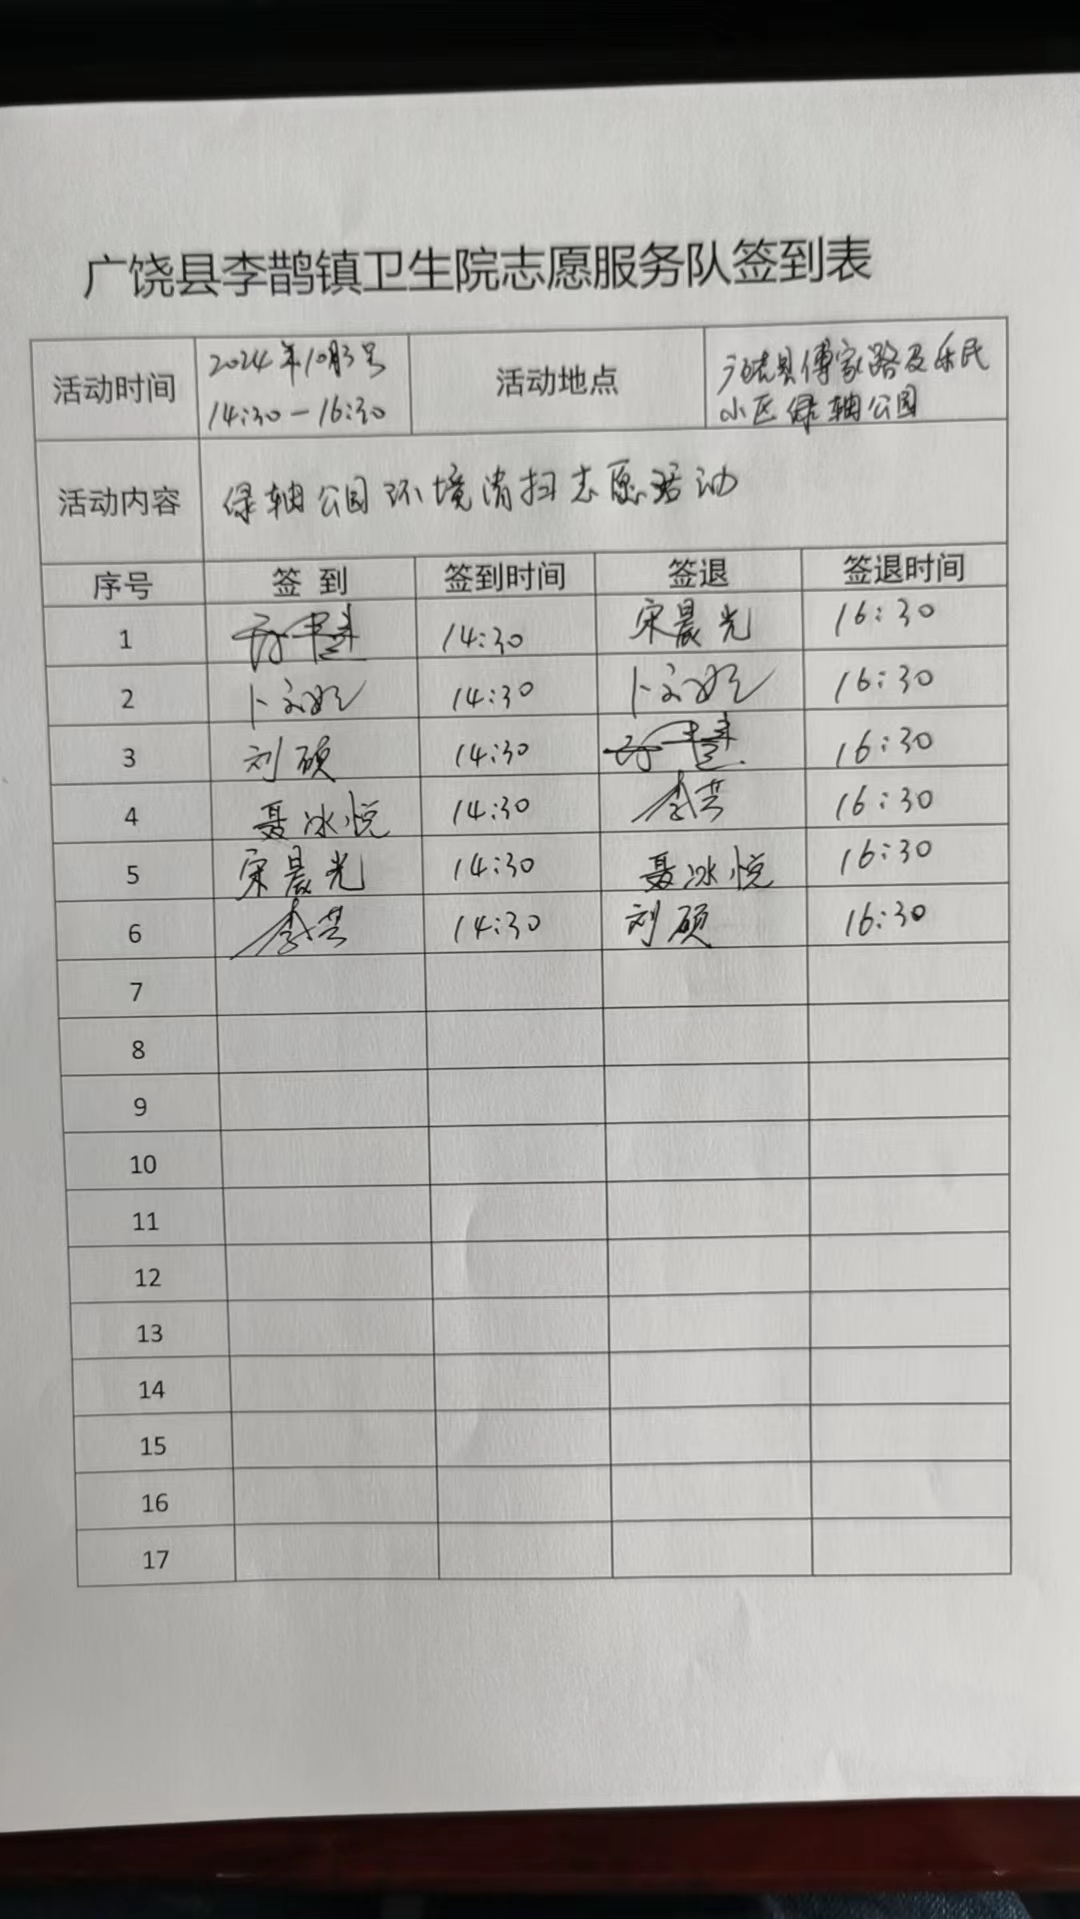 广饶县李鹊镇卫生院志愿服务队签到表
活动时间 2024年10月3号 14:30-16:30 活动地点 广饶县傅家路及乐民小区绿轴公园
活动内容 绿轴公园环境清扫志愿活动
序号 签到 签到时间 签退 签退时间
1 14:30 宋晨光 16:30
2 14:30 16:30
3 刘硕 14:30 16:30
4 聂冰悦 14:30 16:30
5 宋晨光 14:30 聂冰悦 16:30
6 14:30 刘硕 16:30
7
8
9
10
11
12
13
14
15
16
17